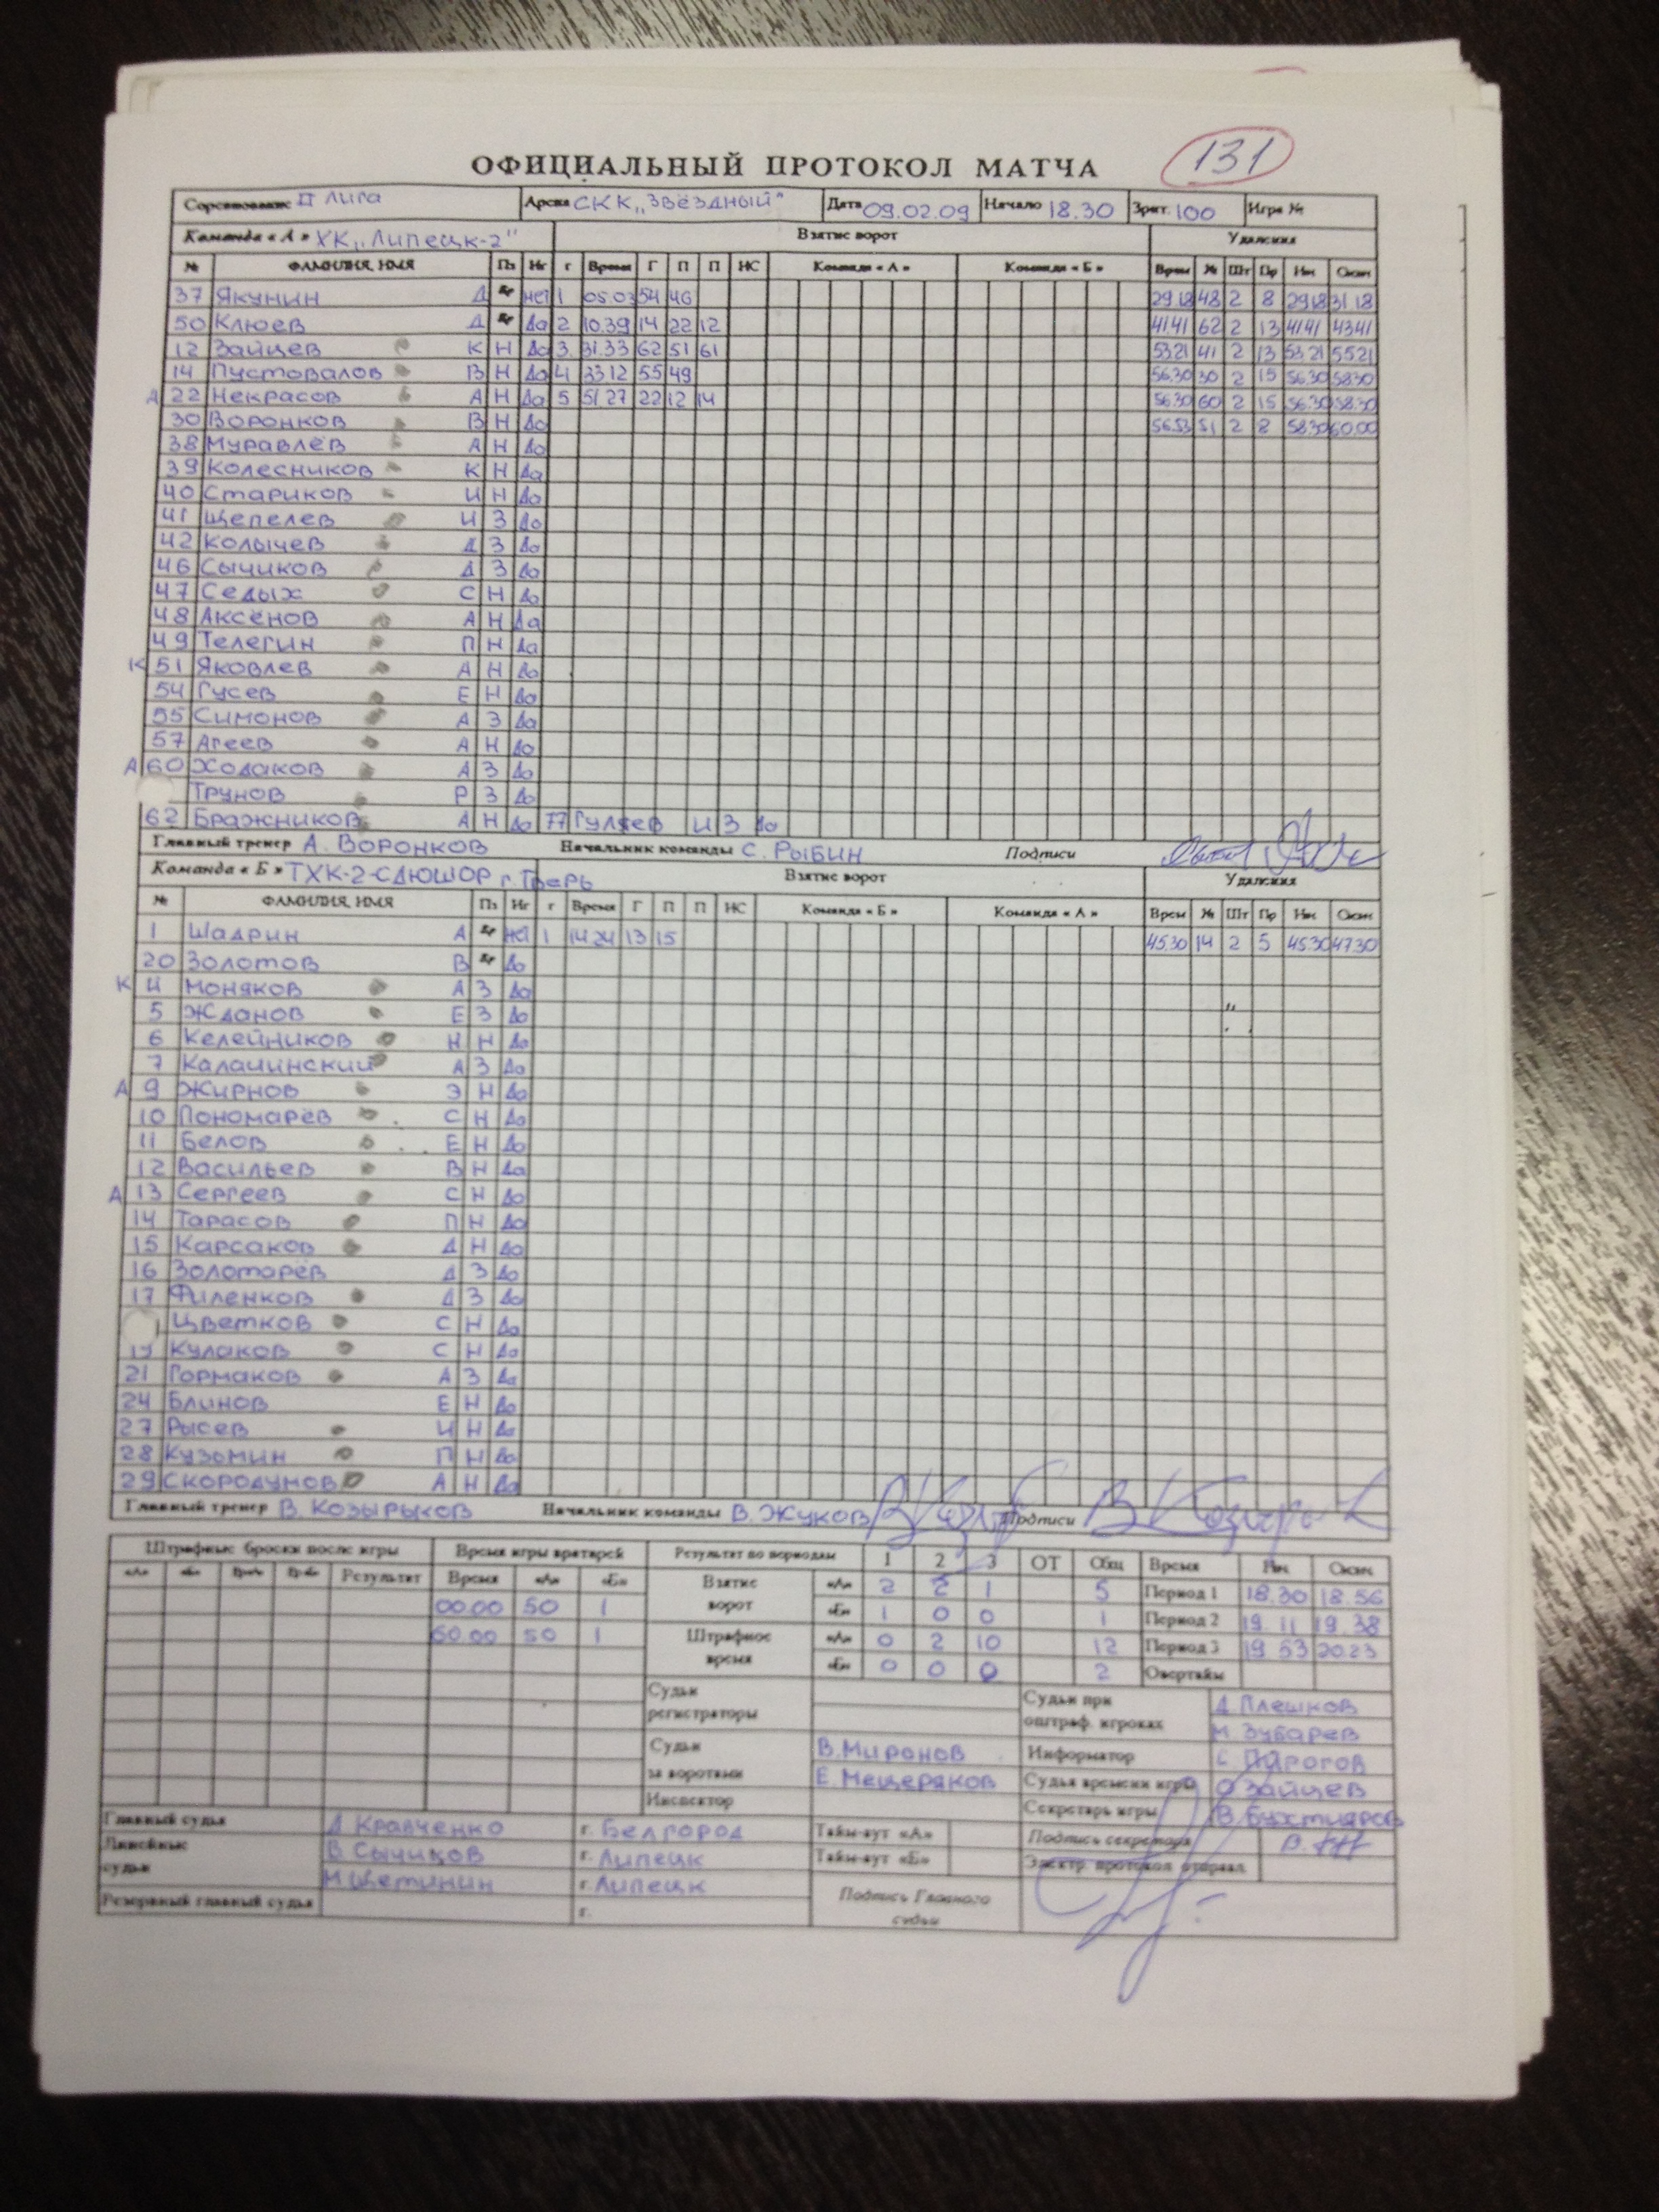 131
ОФИЦИАЛЬНЫЙ ПРОТОКОЛ МАТЧА
Соревнование II Лига Арена СКК „Звёздный" Дата 09.02.09 Начало 18.30 Зрит. 100 Игра №
Команда «А» ХК „Липецк-2" Взятие ворот Удаления
№ ФАМИЛИЯ, ИМЯ Пз Иг г Время Г П П НС Команда «А» Команда «Б» Время № Шт Пр Нач Оконч
37 Якунин Д Вр нет 1 05.03 54 46 29.18 48 2 8 29.18 31.18
50 Клюев Д Вр Да 2 10.39 14 22 12 41.41 62 2 13 41.41 43.41
12 Зайцев К Н Да 3. 31.33 62 51 61 53.21 41 2 13 53.21 55.21
14 Пустовалов В Н Да 4 33.12 55 49 56.30 30 2 15 56.30 58.30
А 22 Некрасов А Н Да 5 51.27 22 12 14 56.30 60 2 15 56.30 58.30
30 Воронков В Н Да 56.53 51 2 8 58.30 60.00
38 Муравлёв А Н Да
39 Колесников К Н Да
40 Стариков И Н Да
41 Щепелев И З Да
42 Колычев Д З Да
46 Сычиков Д З Да
47 Седых С Н Да
48 Аксёнов А Н Да
49 Телегин П Н Да
К 51 Яковлев А Н Да
54 Гусев Е Н Да
55 Симонов А З Да
57 Агеев А Н Да
А 60 Ходаков А З Да
Трунов Р З Да
62 Бражников А Н Да 77 Гуляев И З Да
Главный тренер А. Воронков Начальник команды С. Рыбин Подписи
Команда «Б» ТХК-2-СДЮШОР г. Тверь Взятие ворот Удаления
№ ФАМИЛИЯ, ИМЯ Пз Иг г Время Г П П НС Команда «Б» Команда «А» Время № Шт Пр Нач Оконч
1 Шадрин А Вр 1 14.24 13 15 45.30 14 2 5 45.30 47.30
20 Золотов В Вр Да
К 4 Моняков А З Да
5 Жданов Е З Да
6 Келейников Н Н Да
7 Калашинский А З Да
А 9 Жирнов Э Н Да
10 Пономарёв С Н Да
11 Белов Е Н Да
12 Васильев В Н Да
А 13 Сергеев С Н Да
14 Тарасов П Н Да
15 Карсаков Д Н Да
16 Золотарёв Д З Да
17 Филенков Д З Да
Цветков С Н Да
19 Кулаков С Н Да
21 Гормаков А З Да
24 Блинов Е Н Да
27 Рысев И Н Да
28 Кузьмин П Н Да
29 Скородумов А Н Да
Главный тренер В. Козырьков Начальник команды В. Жуков Подписи
Штрафные броски после игры Время игры вратарей Результат по периодам 1 2 3 ОТ Общ Время Нач Оконч
«А» «Б» Вр«А» Вр«Б» Результат Время «А» «Б» Взятие ворот «А» 2 2 1 5 Период 1 18.30 18.56
00.00 50 1 «Б» 1 0 0 1 Период 2 19.11 19.38
60.00 50 1 Штрафное время «А» 0 2 10 12 Период 3 19.53 20.23
«Б» 0 0 0 2 Овертайм
Судьи регистраторы Судьи при оштраф. игроках Д. Плешков
М. Зубарев
Судьи за воротами В. Миронов Информатор С. Пирогов
Е. Мещеряков Судья времени игры О. Зайцев
Инспектор Секретарь игры В. Бухтияров
Главный судья Д. Кравченко г. Белгород Тайм-аут «А» Подпись секретаря
Линейные судьи В. Сычиков г. Липецк Тайм-аут «Б» Электр. протокол отправл.
М. Щетинин г. Липецк Подпись Главного судьи
Резервный главный судья г.